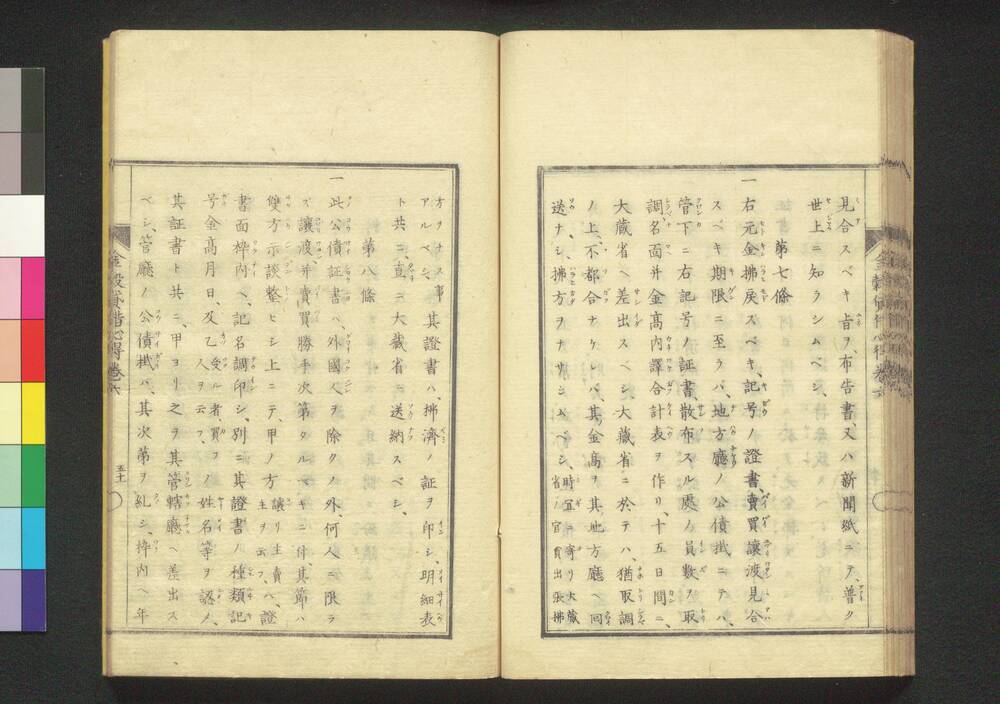 見合スベキ旨ヲ、布告書、又ハ新聞紙ニテ、普ク
世上ニ知ラシムベシ、
第七條
一 右元金拂戻スベキ、記号ノ證書、賣買讓渡見合
スベキ期限ニ至ラバ、地方廳ノ公債掛ニテハ、
管下ニ右記号ノ証書、散布スル処ノ員數ヲ取
調、名面并金髙内譯合計表ヲ作リ、十五日間ニ、
大蔵省ヘ差出スベシ、大蔵省ニ於テハ、猶取調
ノ上、不都合ナケレバ、其金髙ヲ、其地方廳ヘ回
送ナシ、拂方ヲナサシムベシ、時宜ニ寄リ大蔵
省ノ官員出張拂
方ヲナス事
アルベシ、其證書ハ、拂濟ノ証ヲ印シ、明細表
ト共ニ、直ニ大蔵省ニ送納スベシ、
第八條
一 此公債証書ハ、外國人ヲ除クノ外、何人ニ限ラ
ズ、讓渡并賣買勝手次第タルベキニ付、其節ハ
雙方示談整ヒシ上ニテ、甲ノ方讓リ主賣
主ヲ云フ、ハ、證
書面枠内ヘ、記名調印シ、別ニ其證書ノ種類記
号金髙月日、及乙受ル者買フ
人ヲ云フ、ノ姓名等ヲ認メ、
其証書ト共ニ、甲ヨリ之ヲ其管轄廳ヘ差出ス
ベシ、管廳ノ公債掛ハ、其次第ヲ糺シ、枠内ヘ年
金穀貸借心得 巻六
五十